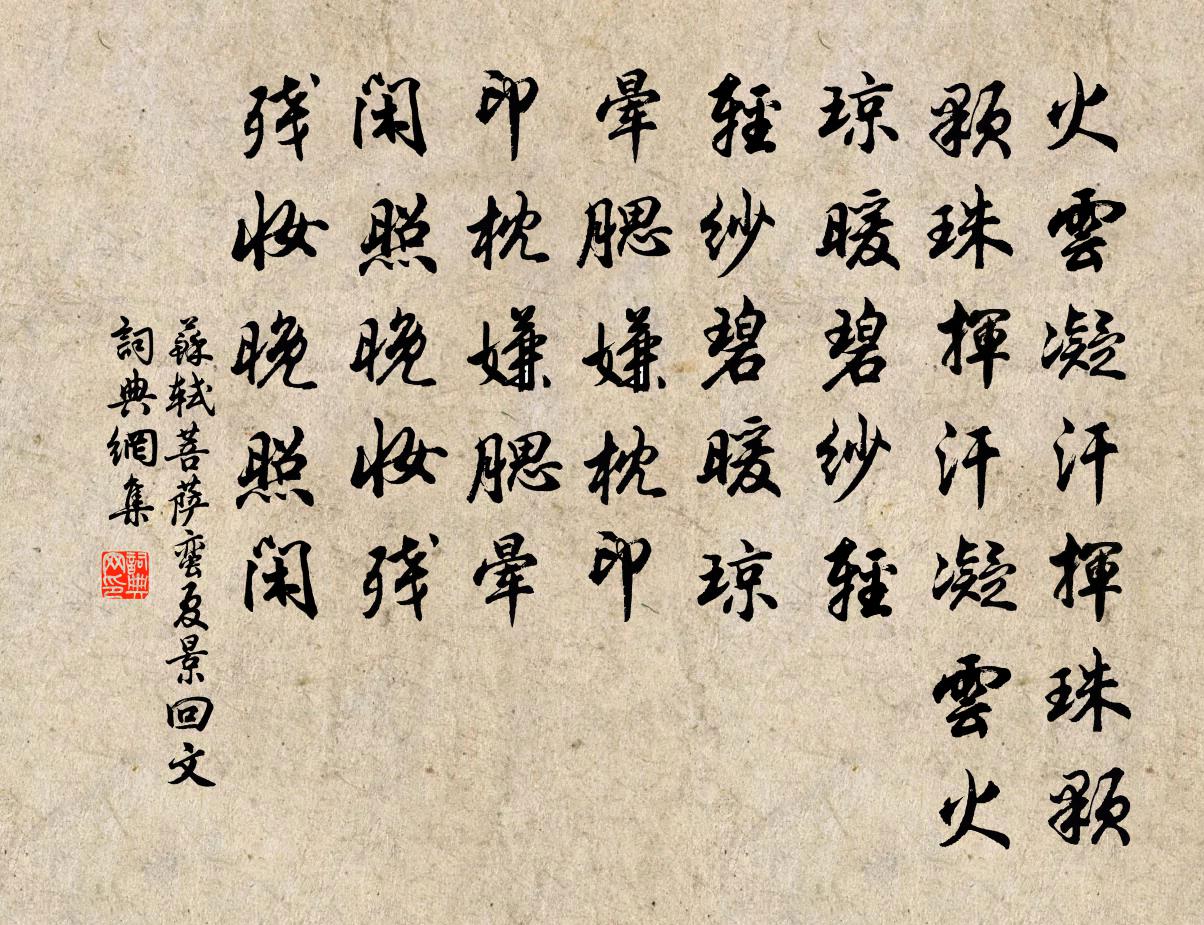 火雲凝汗揮珠顆
顆珠揮汗凝雲火
琼暖碧紗輕
輕紗碧暖琼
暈腮嫌枕印
印枕嫌腮暈
闲照晚妆残
残妆晚照闲
蘇轼菩萨蛮夏景回文
詞典網集
詞典网印